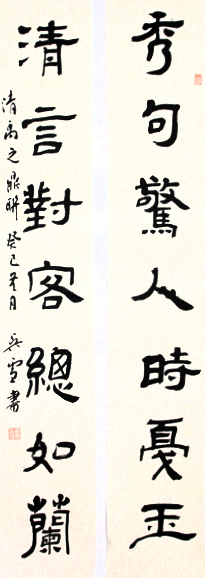 秀句驚人時戛玉
清言對客總如蘭
清禹之鼎聯 癸巳 月 吳雪書